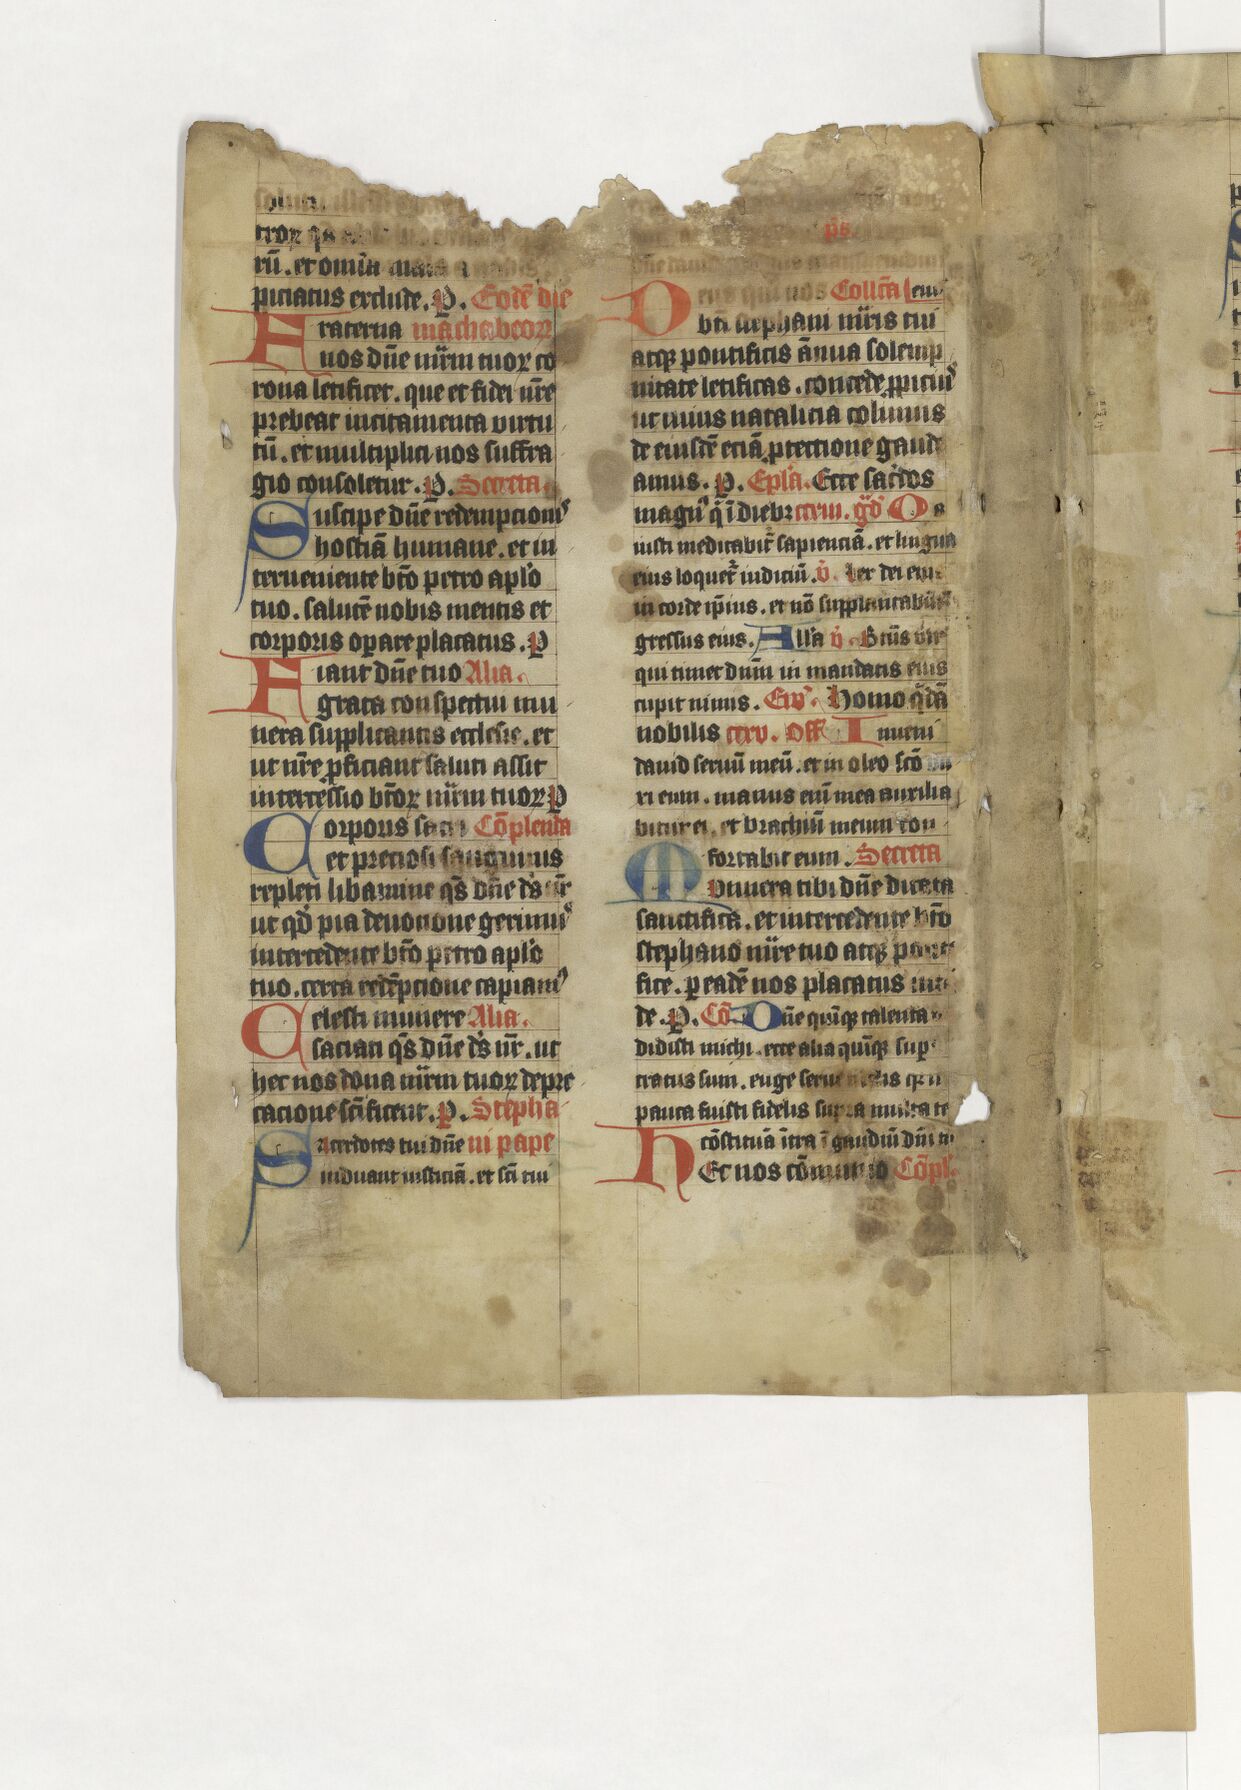 troꝝ
rū. et omnia mala a nobis
piciatus exclude. P. Eodē die
Fraterna machabeoꝝ
nos dn̄e m̄rm tuoꝝ co
rona letificet. que et fidei nr̄e
prebeat incitamenta virtu
tū. et multiplici nos suffra
gio consoletur. P. Secreta.
Suscipe dn̄e redempcionis
hostiā humane. et in
terueniente bt̄o petro apl̄o
tuo. salutē nobis mentis et
corporis oꝑare placatus. P
Fiant dn̄e tuo Alia.
grata conspectui mu
nera supplicantis ecclesie. et
ut nr̄e ꝓficiant saluti assit
intercessio bt̄oꝝ m̄rm tuoꝝ P
Corporis sacri Cōplenda
et preciosi sanguinis
repleti libamine qs̄ dn̄e ds̄ nr̄
ut qd̄ pia deuocione gerimus
intercedente bt̄o petro apl̄o
tuo. certa redēpcione capiam⁹
Celesti munere Alia.
saciati qs̄ dn̄e ds̄ nr̄. ut
hec nos dona m̄rm tuoꝝ depre
cacione sc̄ificent. P. Stepha
Sacerdotes tui dn̄e ni pape
induant iusticiā. et sc̄i tui
ps̄.
Deus qui nos Collc̄a
bt̄i stephani m̄ris tui
atqꝫ pontificis ānua solemp
nitate letificas. concede ꝓpicius
ut cuius natalicia colimus
de eiusdē eciā ꝓtectione gaude
amus. P. Epl̄a. Ecce sac̄dos
magn⁹ q̄ ī diebꝫ cxviii. gd̄ Os
iusti meditabit̄ sapienciā. et lingua
eius loquet̄ iudiciū. v̄. Lex dei eius
in corde ip̄ius. et nō supplantabūt̄
gressus eius. All̄a v̄. Btūs vir
qui timet dnm̄ in mandatis eius
cupit nimis. Ew̄. Homo q̄dā
nobilis cxxv. Off Inueni
dauid seruū meū. et in oleo sc̄o un
xi eum. manus eni mea auxilia
bitur ei. et brachiū meum con
fortabit eum. Secreta
Munera tibi dn̄e dicata
sanctifica. et intercedente bt̄o
stephano m̄re tuo atqꝫ ponti
fice. ꝑ eadē nos placatus inten
de. P. Cō. Dn̄e quīqꝫ talenta
didisti michi. ecce alia quīqꝫ sup
cratus sum. euge serue
pauca fuisti fidelis supra multa te
cōstituā ītra ī gaudiū dn̄i
Hec nos cōmunio Cōpl̄.